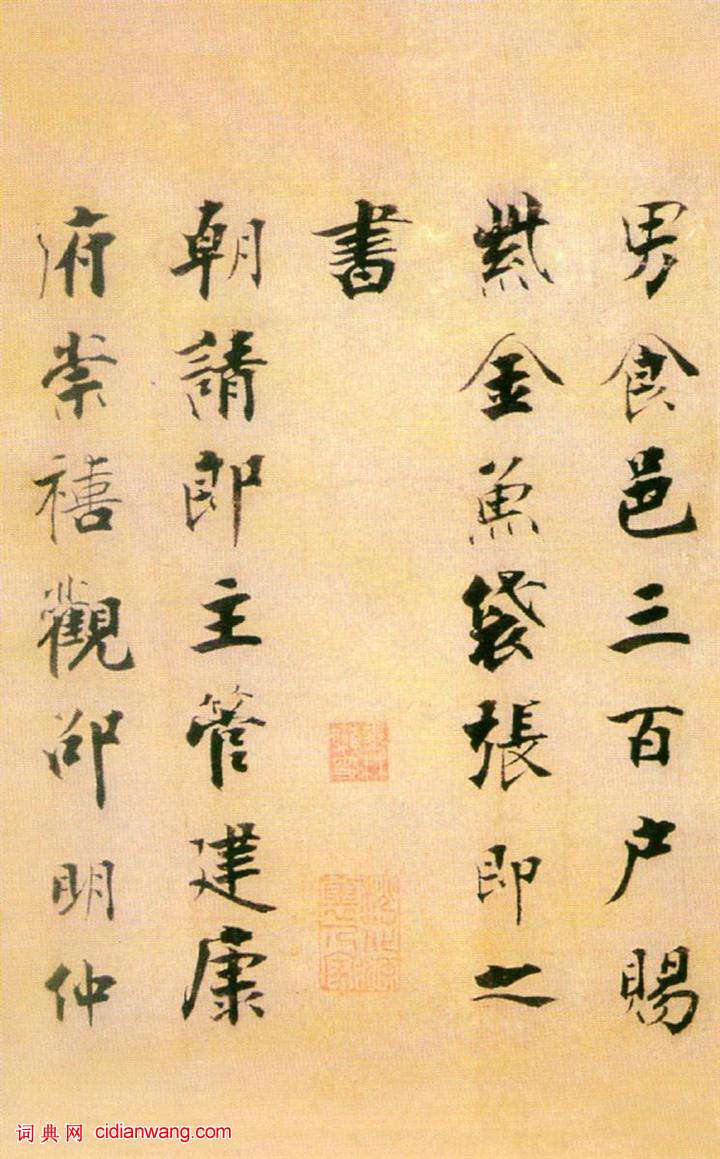 男食邑三百户賜
紫金魚袋張即之
書
朝請郎主管建康
府崇禧觀邵明仲
词典网 cidianwang.com